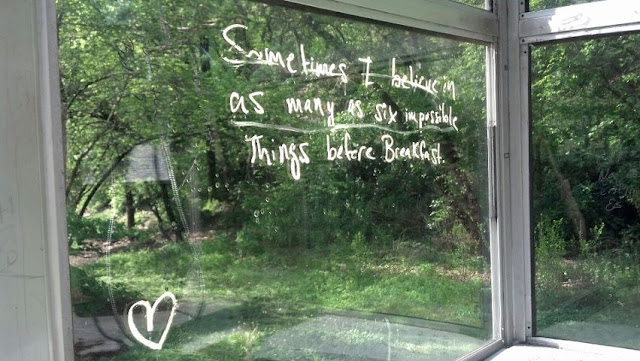 Sometimes I believe in
as many as six impossible
Things before Breakfast.